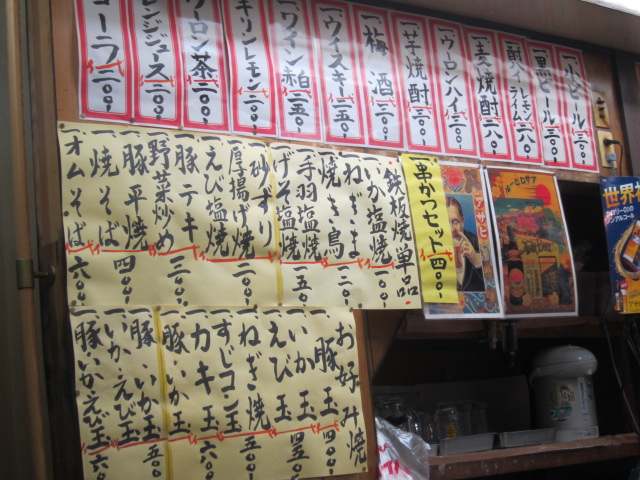 一.小ビール 三〇〇-
一.黒ビール 三〇〇-
一.麦焼酎 二八〇-
一.ウーロンハイ 三〇〇-
一.芋焼酎 三〇〇-
一.梅酒 二〇〇-
一.ウィスキー 二五〇-
一.ワイン 赤 白 二五〇-
キリンレモン 二〇〇-
ウーロン茶 二〇〇-
オレンジジュース 二〇〇-
コーラ 二〇〇-
一.串かつセット 四〇〇-
鉄板焼単品
一.いか塩焼
一.ねぎま
一.焼き鳥 一二〇-
一.手羽塩焼
一.げそ塩焼 一五〇-
一.砂ずり
一.厚揚げ焼 二〇〇-
一.えび塩焼
一.豚テキ
一.野菜炒め 三〇〇-
一.豚平焼 四〇〇-
一.焼そば
一.オムそば 六〇〇-
お好み焼
一.豚玉 四〇〇-
一.いか玉
一.えび玉 四五〇-
一.ねぎ焼
一.すじコン玉 五〇〇-
一.カキ玉
一.豚.いか玉 六〇〇-
一.豚.いか玉 五〇〇-
一.いか.えび玉
一.豚.いか.えび玉 六〇〇-
アサヒ
世界